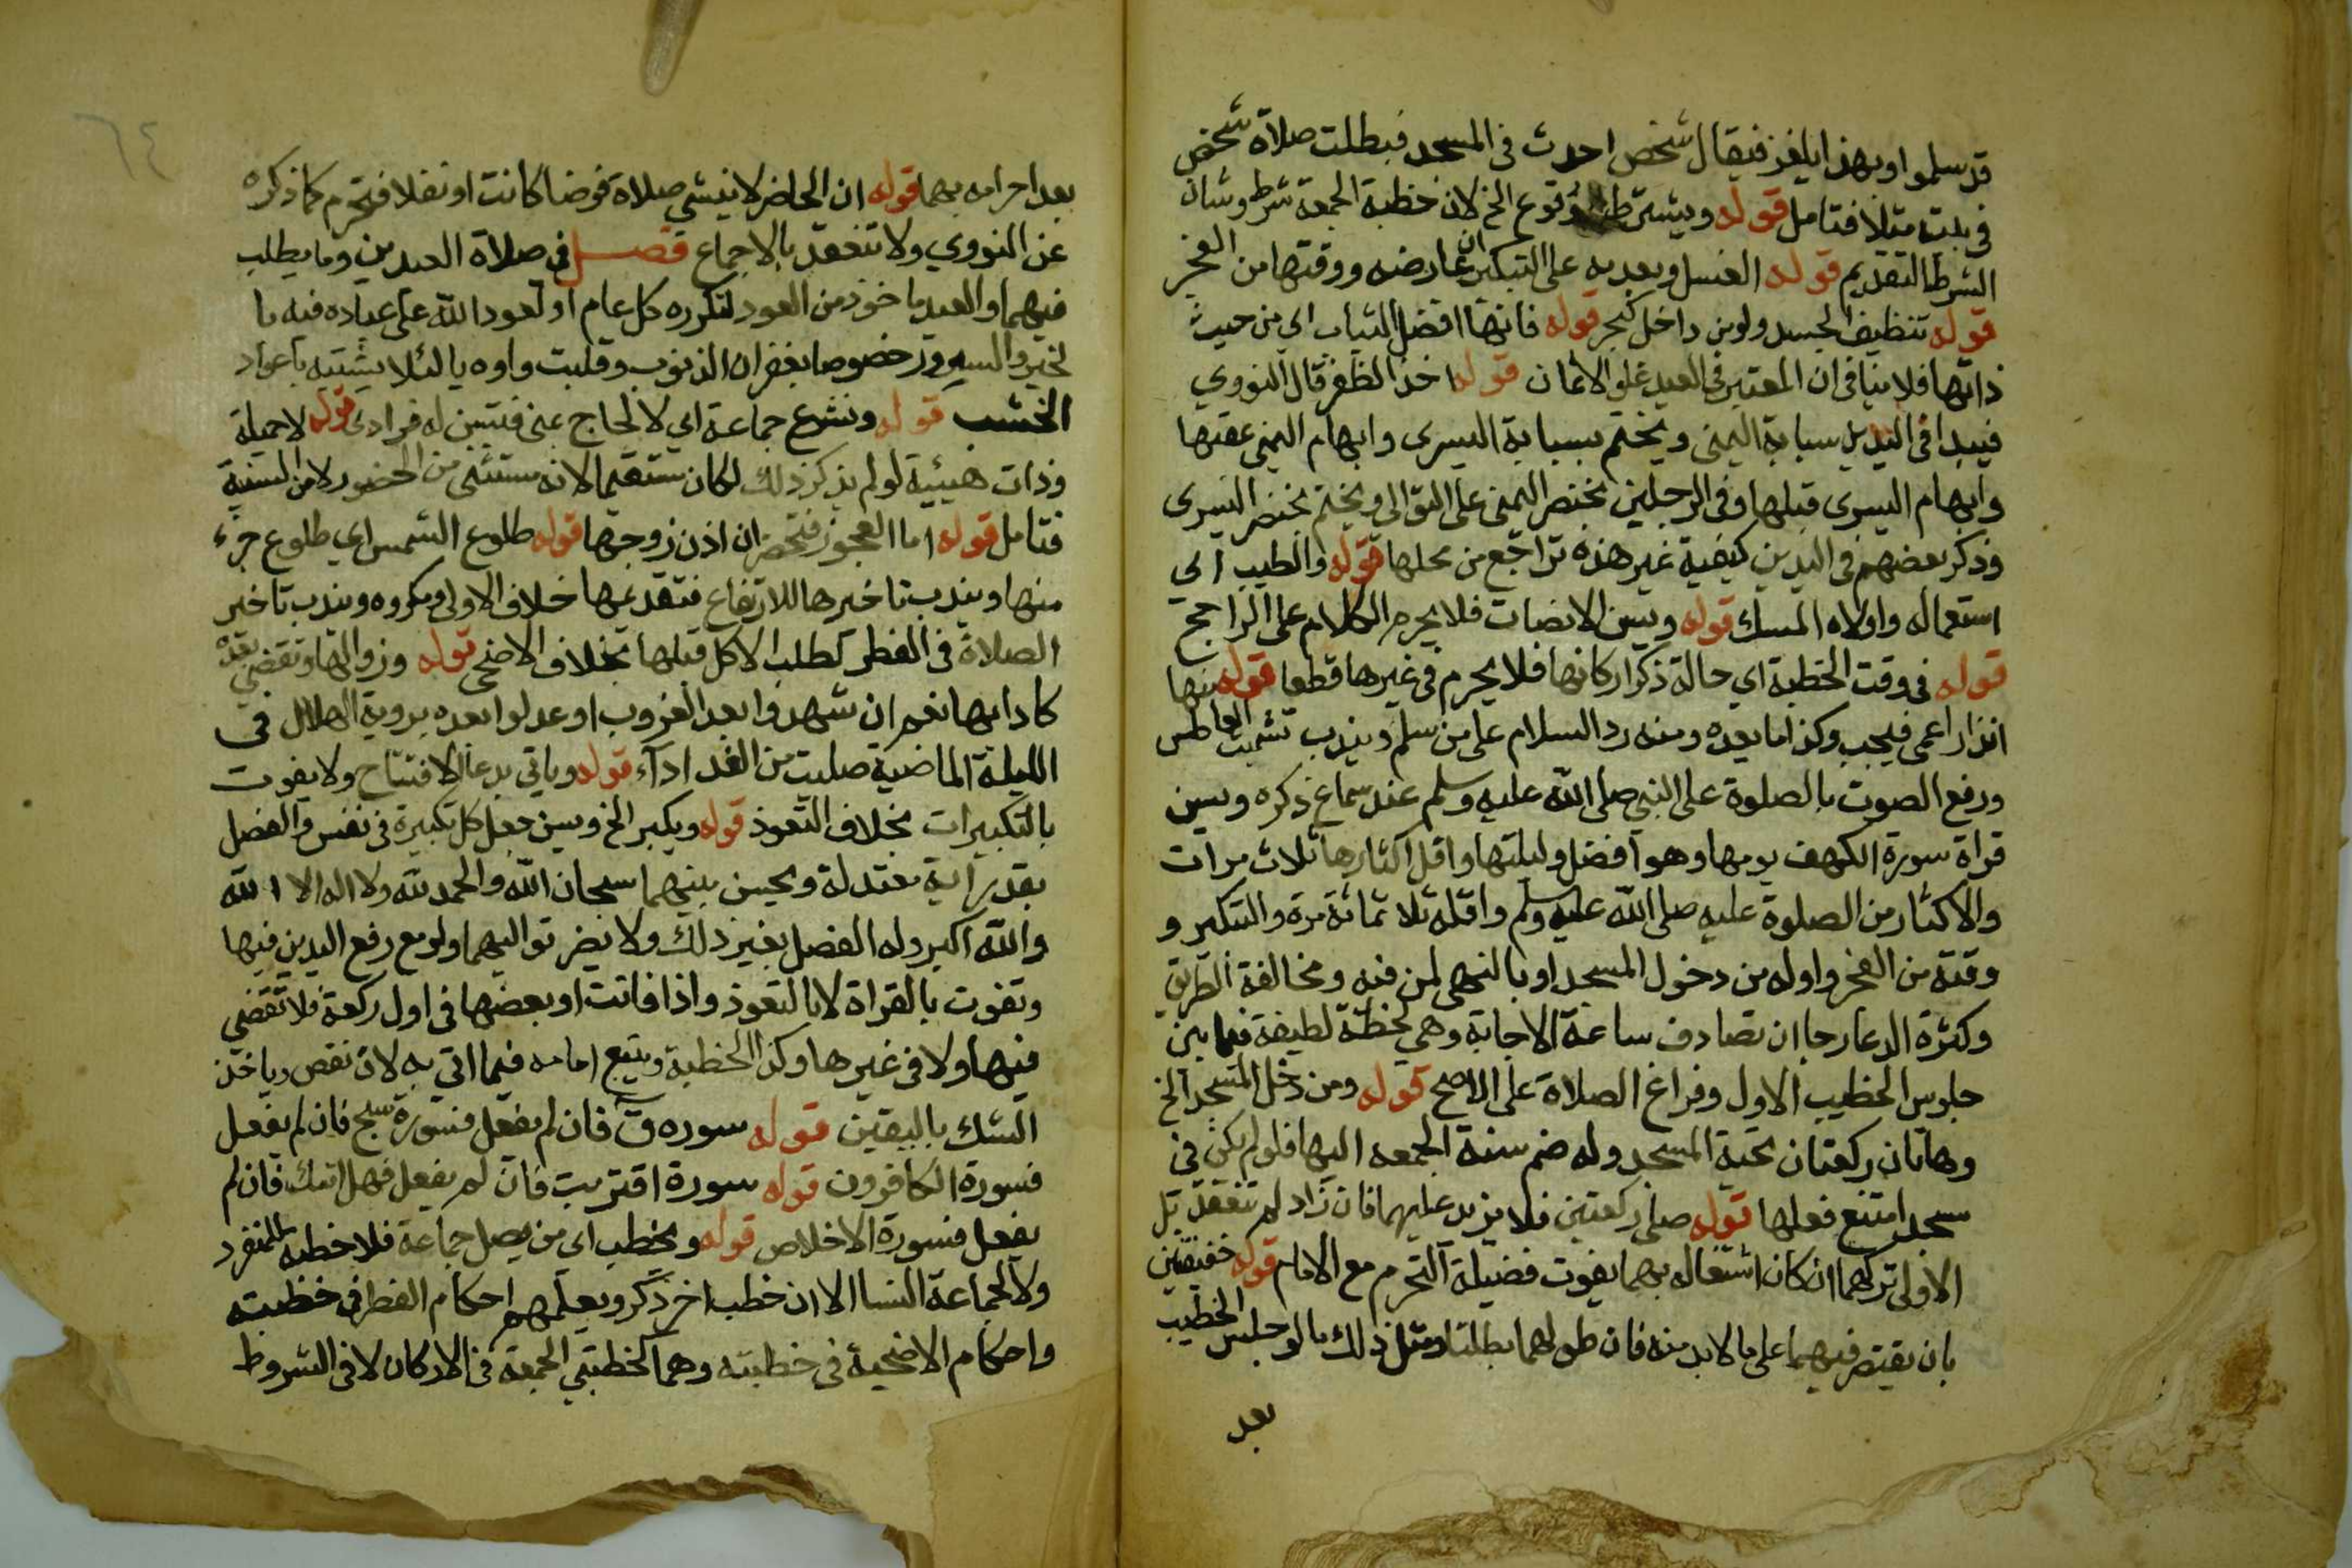 قد سلموا وبهذا يلغز فيقال شخص احدث في المسجد فبطلت صلاة شخص
في بيته مثلا فتامل قوله ويشترط وقوع الخ لان خطبة الجمعة شرط وشان
الشرط التقديم قوله الغسل ويعدبه على التبكير ان عارضه ووقتها من الفجر
قوله تنظيف الجسد ولو من داخل كبجر قوله فانها افضل الثياب اي من حيث
ذاتها فلا ينافي ان المعتبر في العيد غلو الاثمان قوله اخذ الظفر قال النووي
فيبدا في اليدين سبابة اليمنى ويختم بسبابة اليسرى وابهام اليمنى عقبها
وابهام اليسرى قبلها وفي الرجلين بخنصر اليمنى على التوالى ويختم بخنصر اليسرى
وذكر بعضهم في اليدين كيفية غير هذه تراجع من محلها قوله والطيب اي
استعماله واولاه المسك قوله ويسن الانصات فلا يحرم الكلام على الراجح
قوله في وقت الخطبة اي حالة ذكر اركانها فلا يحرم في غيرها قطعا قوله منها
انذار اعمى فيجب وكذا ما بعده ومنه رد السلام على من سلم ويندب تشميت العاطس
ورفع الصوت بالصلوة على النبي صلى الله عليه وسلم عند سماع ذكره ويسن
قراة سورة الكهف يومها وهو افضل وليلتها واقل اكثارها ثلاث مرات
والاكثار من الصلوة عليه صلى الله عليه وسلم واقله ثلاثمائة مرة والتبكير و
وقته من الفجر واوله من دخول المسجد او بالتهي لمن فيه ومخالفة الطريق
وكثرة الدعا رجا ان تصادف ساعة الاجابة وهي لحظة لطيفة فيما بين
جلوس الخطيب الاول وفراغ الصلاة على الاصح قوله ومن دخل المسجد الخ
وهاتان ركعتان تحية المسجد وله ضم سنة الجمعه اليها فلو لم يكن في
مسجد امتنع فعلها قوله صلى ركعتين فلا يزيد عليهما فان زاد لم تنعقد بل
الاولى تركهما ان كان اشتغاله بهما يفوت فضيلة التحرم مع الامام قوله خفيفتين
بان يقتصر فيهما على ما لا بد منه فان طولهما بطلتا ومثل ذلك ما لو جلس الخطيب
بعد
٦٤
بعد احرامه بهما قوله ان الحاضر لا ينشي صلاة فرضا كانت او نفلا فتحرم كما ذكره
عن النووي ولا تنعقد بالاجماع فصل في صلاة العيدين وما يطلب
فيهما والعيد ماخوذ من العود لتكرره كل عام او لعود الله على عباده فيه با
لخير والسرور خصوصا بغفران الذنوب وقلبت واوه يا لئلا يشتبه باعواد
الخشب قوله وتشرع جماعة اي لا لحاج بمنى فتسن له فرادى قوله لا جميلة
وذات هيئة لو لم يذكر ذلك لكان مستقيما لانه مستثنى من الحضور لا من السنية
فتامل قوله اما العجوز فتحضر ان اذن زوجها قوله طلوع الشمس اي طلوع جزء
منها ويندب تاخيرها للارتفاع فتقديمها خلاف الاولى ومكروه ويندب تاخير
الصلاة في الفطر لطلب الاكل قبلها بخلاف الاضحى قوله وزوالها وتقضى بعده
كادائها نعم ان شهدوا بعد الغروب او عدلوا بعده بروية الهلال في
الليلة الماضية صليت من الغد اداء قوله وياتي بدعا الافتتاح ولا يفوت
بالتكبيرات بخلاف التعوذ قوله ويكبر الخ ويسن جعل كل تكبيرة في نفس والفصل
بقدر اية معتدلة ويحسن بينهما سبحان الله والحمد لله ولا اله الا الله
والله اكبر وله الفصل بغير ذلك ولا يضر تواليهما ولو مع رفع اليدين فيها
وتفوت بالقراة لا بالتعوذ واذا فاتت او بعضها في اول ركعة فلا تقضى
فيها ولا في غيرها وكذا الخطبة ويتبع امامه فيما اتى به لان نقص وياخذ
الشك باليقين قوله سوره ق فان لم يفعل فسورة سبح فان لم يفعل
فسورة الكافرون قوله سورة اقتربت فان لم يفعل فهل اتىك فان لم
يفعل فسورة الاخلاص قوله ويخطب اي من يصل جماعة فلا خطبة للمنفرد
ولا لجماعة النسا الا ان خطب اخر ذكر ويعلمهم احكام الفطر في خطبته
واحكام الاضحية في خطبته وهما كخطبتي الجمعة في الاركان لا في الشروط